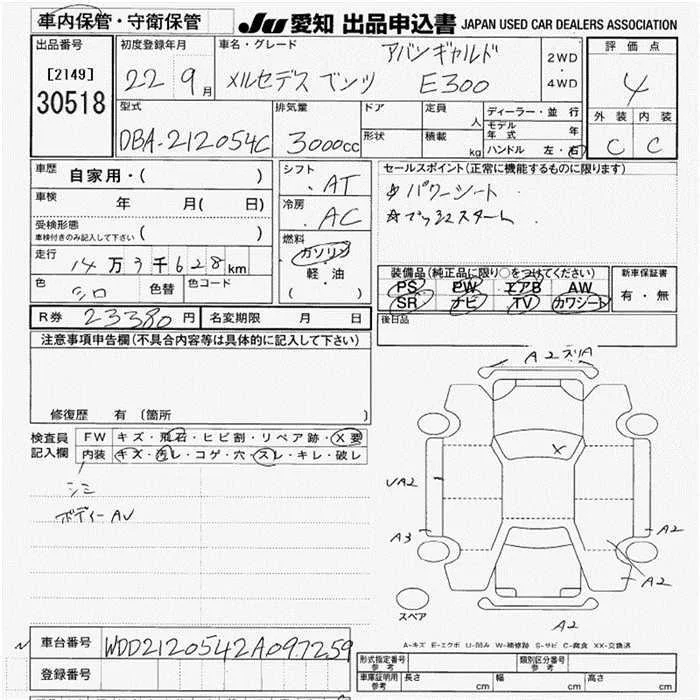 車内保管・守衛保管
JU 愛知 出品申込書 JAPAN USED CAR DEALERS ASSOCIATION
出品番号
[2149]
30518
初度登録年月
22 9月
車名・グレード
アバンギャルド
メルセデス ベンツ E300
2WD
・
4WD
評価点
4
外装 内装
C C
型式
DBA-212054C
排気量
3000cc
ドア
形状
定員
人
積載
kg
ディーラー・並行
モデル年式 年
ハンドル 左・右
車歴
自家用・( )
車検 年 月( 日)
受検形態
車検付きのみ記入して下さい ( )
走行
14万 3千628km
色
シロ
色替
色コード
シフト
AT
冷房
AC
燃料
ガソリン
軽・油
( )
セールスポイント(正常に機能するものに限ります)
☆パワーシート
☆プッシュスタート
装備品(純正品に限り○をつけてください)
PS PW エアB AW
SR ナビ TV カワシート
新車保証書
有・無
後日品
R券 23380円 名変期限 月 日
注意事項申告欄(不具合内容等は具体的に記入して下さい)
修復歴 有 〔箇所 〕
検査員
記入欄
FW キズ・飛石・ヒビ割・リペア跡・X要
内装 キズ・汚レ・コゲ・穴・スレ・キレ・破レ
シミ
ボディーAV
A2 スリA
X
UA2
A3
A2
A2
A2
スペア
A-キズ E-エクボ U-凹み W-補修跡 S-サビ C-腐食 XX-交換済
車台番号 WDD2120542A097259
登録番号
形式指定番号
参考
類別区分番号
参考
車庫証明用
参考
長さ cm 幅 cm 高さ cm